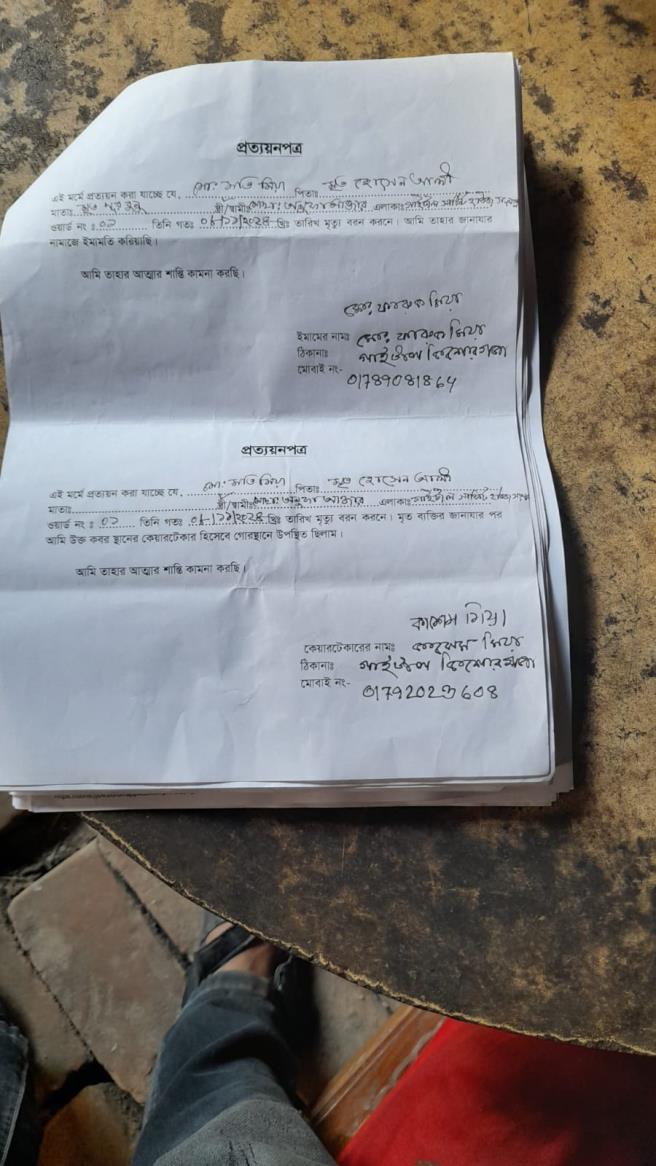 প্রত্যয়নপত্র
এই মর্মে প্রত্যয়ন করা যাচ্ছে যে, মো: মতি মিয়া পিতাঃ মৃত হোসেন আলী
মাতাঃ মৃত স্ত্রী/স্বামীঃ আক্তার এলাকাঃ গাইটাল
ওয়ার্ড নং ঃ ০১ তিনি গতঃ খ্রিঃ তারিখ মৃত্যু বরন করনে। আমি তাহার জানাযার
নামাজে ইমামতি করিয়াছি।
আমি তাহার আত্মার শান্তি কামনা করছি।
মোঃ ফারুক মিয়া
ইমামের নামঃ মোঃ ফারুক মিয়া
ঠিকানাঃ গাইটাল কিশোরগঞ্জ
মোবাই নং- 01789081864
প্রত্যয়নপত্র
এই মর্মে প্রত্যয়ন করা যাচ্ছে যে, মো: মতি মিয়া পিতাঃ মৃত হোসেন আলী
মাতাঃ স্ত্রী/স্বামীঃ আক্তার এলাকাঃ গাইটাল
ওয়ার্ড নং ঃ ০১ তিনি গতঃ খ্রিঃ তারিখ মৃত্যু বরন করনে। মৃত ব্যক্তির জানাযার পর
আমি উক্ত কবর স্থানের কেয়ারটেকার হিসেবে গোরস্থানে উপস্থিত ছিলাম।
আমি তাহার আত্মার শান্তি কামনা করছি।
কাশেম মিয়া
কেয়ারটেকারের নামঃ কাশেম মিয়া
ঠিকানাঃ গাইটাল কিশোরগঞ্জ
মোবাই নং-